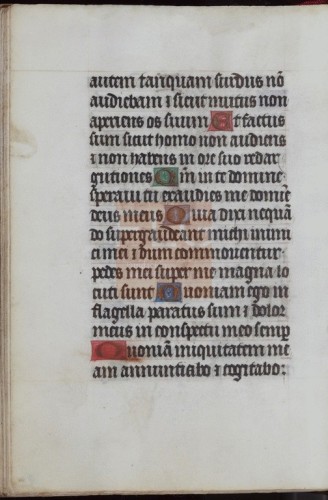 autem tanquam surdus nō
audiebam ⁊ sicut mutus non
aperiens os suum Et factus
sum sicut homo non audiens
⁊ non habens in ore suo redar
gutiones Qm̄ in te domine
speraui tu exaudies me domine
deus meus Quia dixi nequā
do supergaudeant michi inimi
ci mei ⁊ dum commouentur
pedes mei super me magna lo
cuti sunt Quoniam ego in
flagella paratus sum ⁊ dolor
meus in conspectu meo semꝑ
Quoniā iniquitatem me
am annuntiabo ⁊ cogitabo: